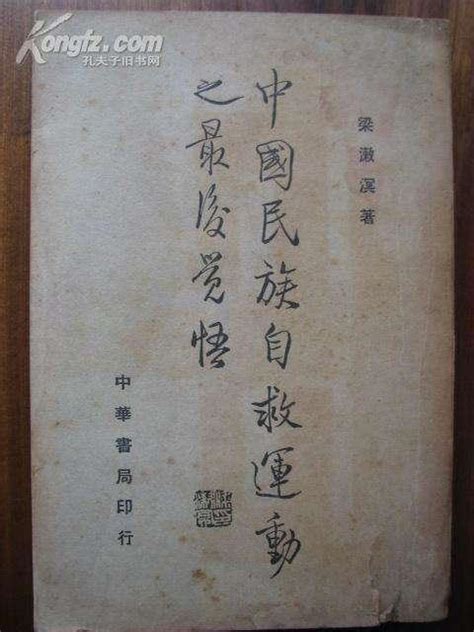 Kongfz.com
孔夫子旧书网
梁漱溟著
中國民族自救運動
之最後觉悟
中華書局印行